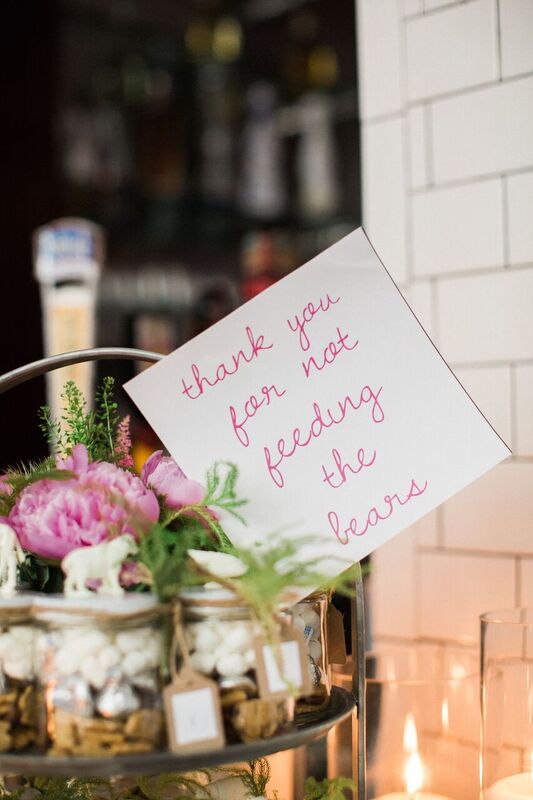 thank you
for not
feeding
the
bears